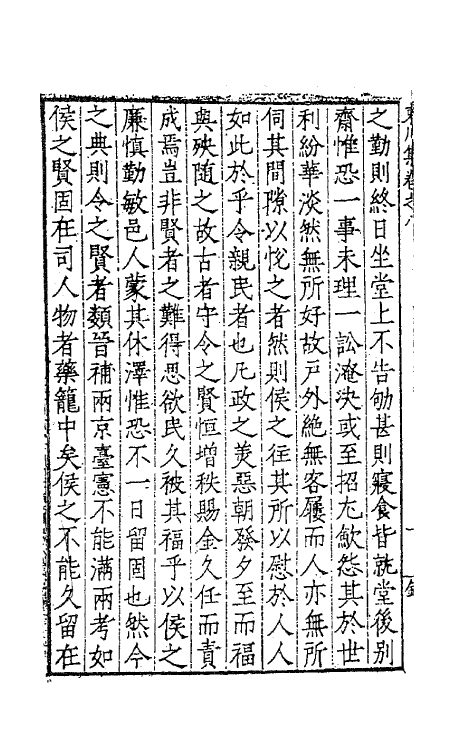 之勤則終日坐堂上不告劬甚則寢食皆就堂後別
齋惟恐一事未理一訟淹决或至招尤歛怨其於世
利紛華淡然無所好故戶外絶無客屨而人亦無所
伺其間隙以恱之者然則侯之徃其所以慰於人人
如此於乎令親民者也凡政之美惡朝發夕至而福
與殃隨之故古者守令之賢恒增秩賜金久任而責
成焉豈非賢者之難得思欲民久被其福乎以侯之
廉慎勤敏邑人蒙其休澤惟恐不一日留固也然今
之典則令之賢者纇晉補兩京臺憲不能滿兩考如
侯之賢固在司人物者藥籠中矣侯之不能久留在